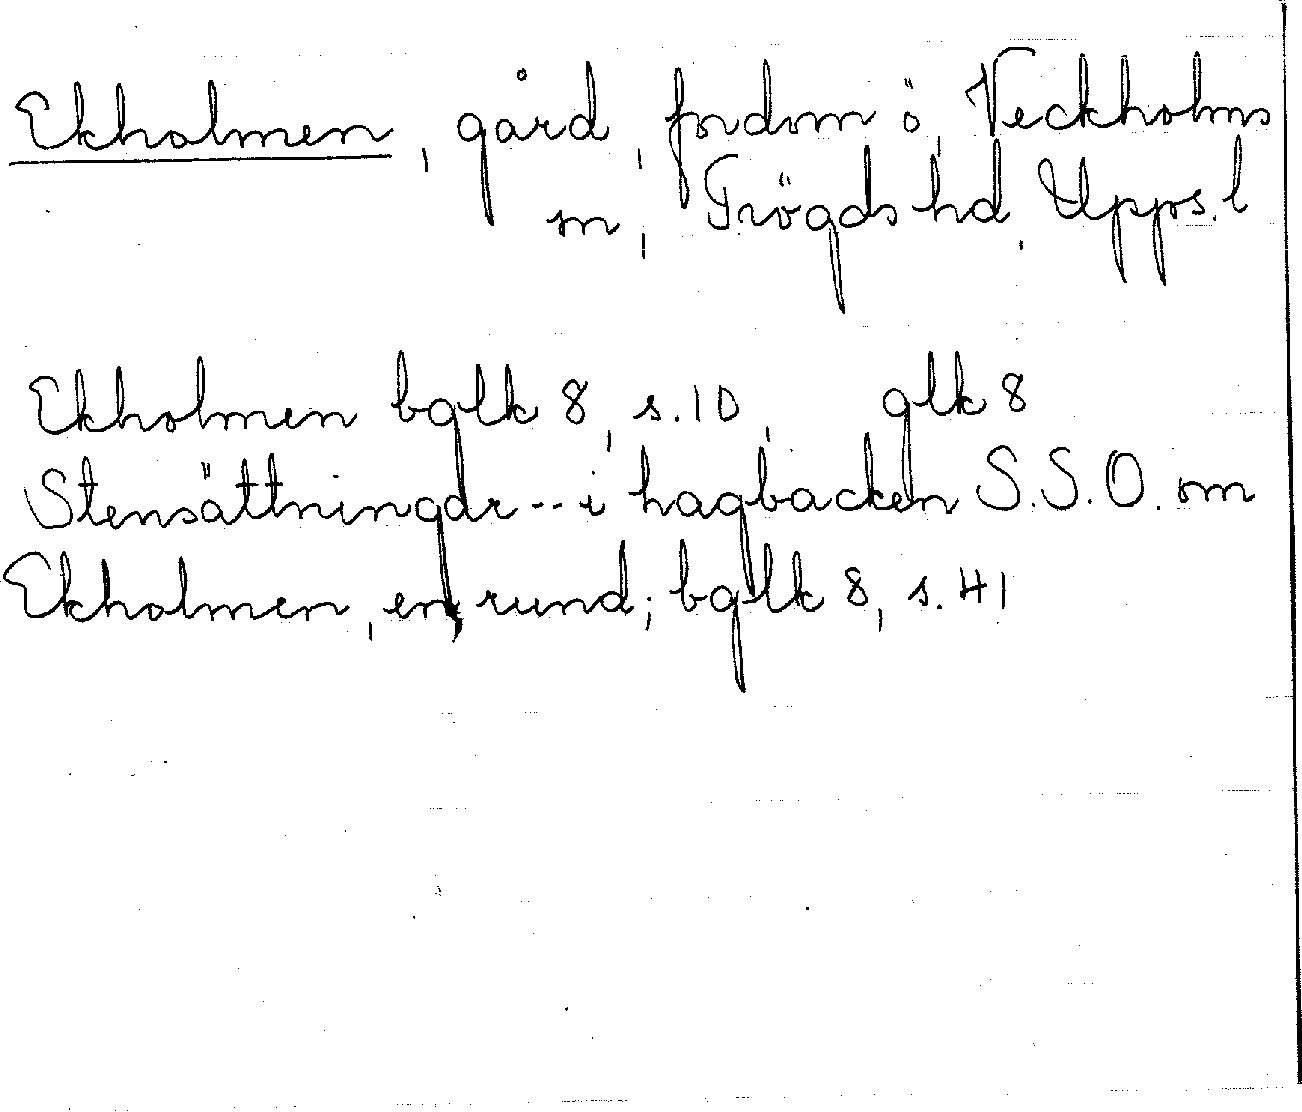 Ekholmen, gård, fordom ö, Veckholms
sn, Trögds hd, Upps. l
Ekholmen bglk 8, s. 10, glk 8
Stensättningar -- i hagbacken S.S.O. om
Ekholmen, en rund; bglk 8, s. 41